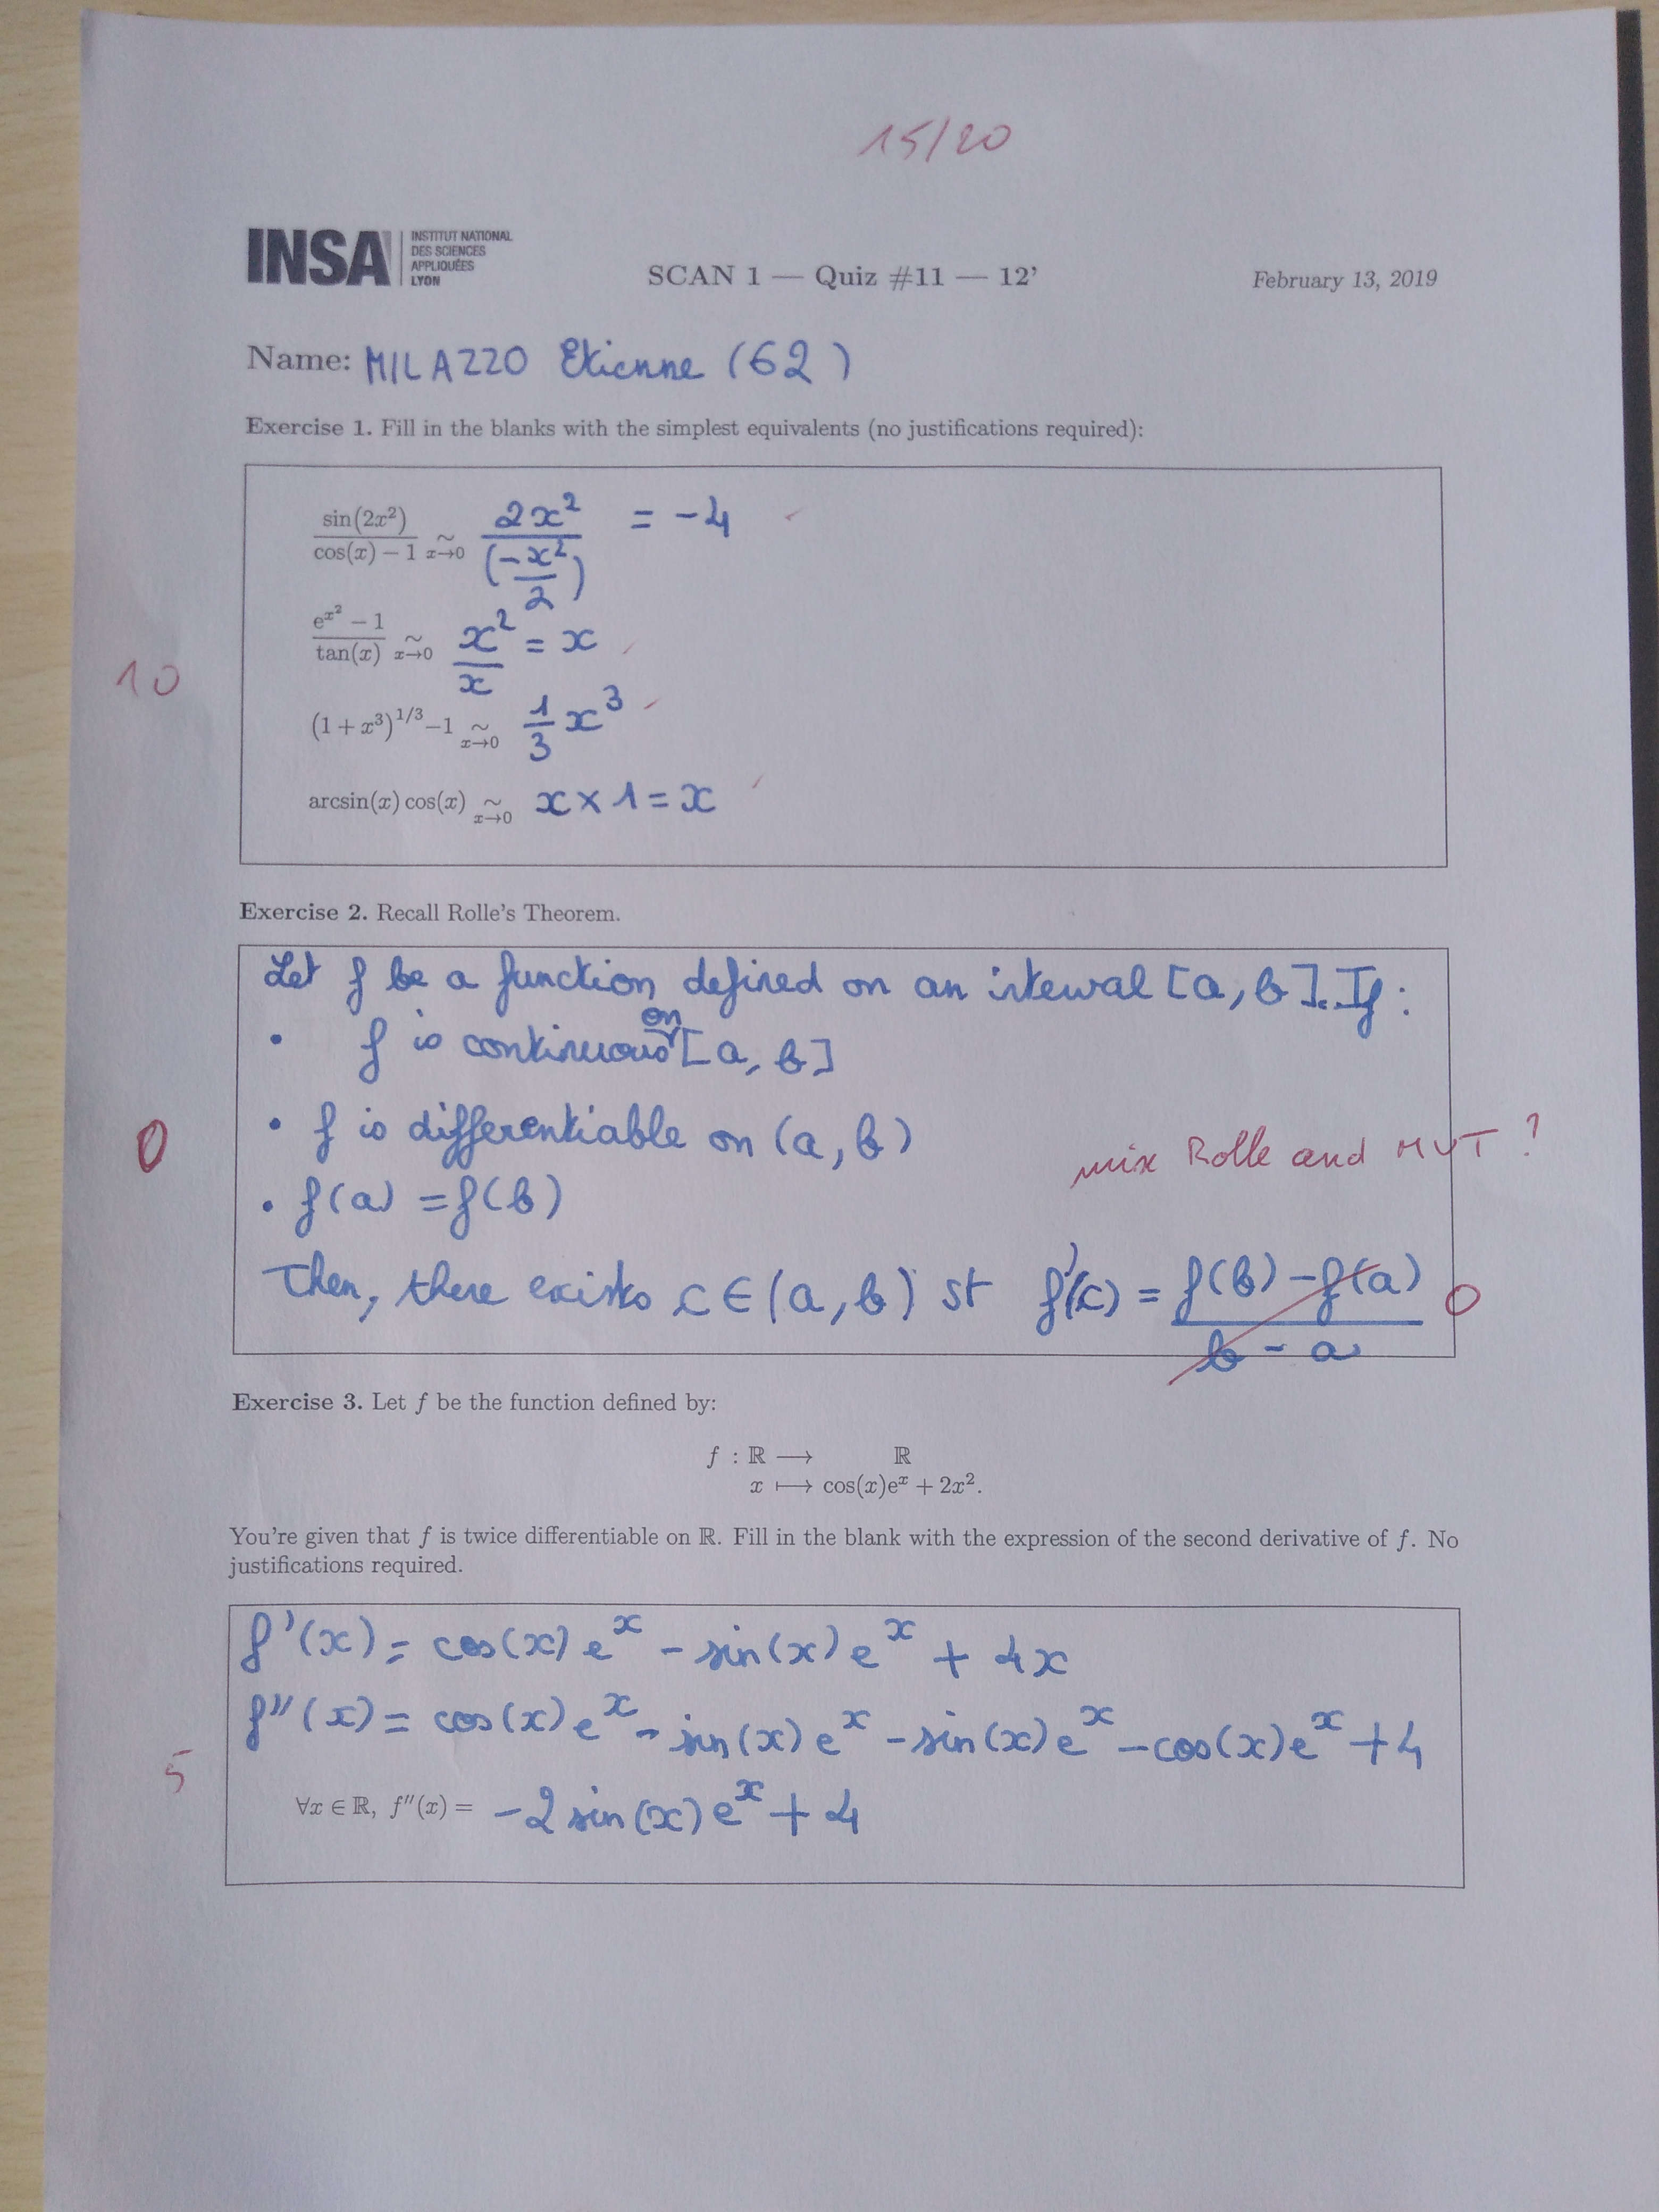 15/20
INSA INSTITUT NATIONAL
DES SCIENCES
APPLIQUÉES
LYON
SCAN 1 — Quiz #11 — 12’
February 13, 2019
Name: MILAZZO Etienne (62)
Exercise 1. Fill in the blanks with the simplest equivalents (no justifications required):
sin(2x²)/(cos(x) − 1) ~ x→0 2x²/(-x²/2) = -4
(e^(x²) − 1)/tan(x) ~ x→0 x²/x = x
10
(1 + x³)^(1/3) − 1 ~ x→0 1/3 x³
arcsin(x) cos(x) ~ x→0 x × 1 = x
Exercise 2. Recall Rolle's Theorem.
Let f be a function defined on an interval [a, b]. If :
• f is continuous on [a, b]
• f is differentiable on (a, b)
0
mix Rolle and MVT ?
• f(a) = f(b)
Then, there exists c ∈ (a, b) st f'(c) = (f(b) - f(a))/(b - a) 0
Exercise 3. Let f be the function defined by:
f : ℝ ⟶ ℝ
x ⟼ cos(x)e^x + 2x².
You're given that f is twice differentiable on ℝ. Fill in the blank with the expression of the second derivative of f. No
justifications required.
f'(x) = cos(x) e^x - sin(x) e^x + 4x
f''(x) = cos(x) e^x - sin(x) e^x - sin(x) e^x - cos(x) e^x + 4
5
∀x ∈ ℝ, f''(x) = -2 sin(x) e^x + 4